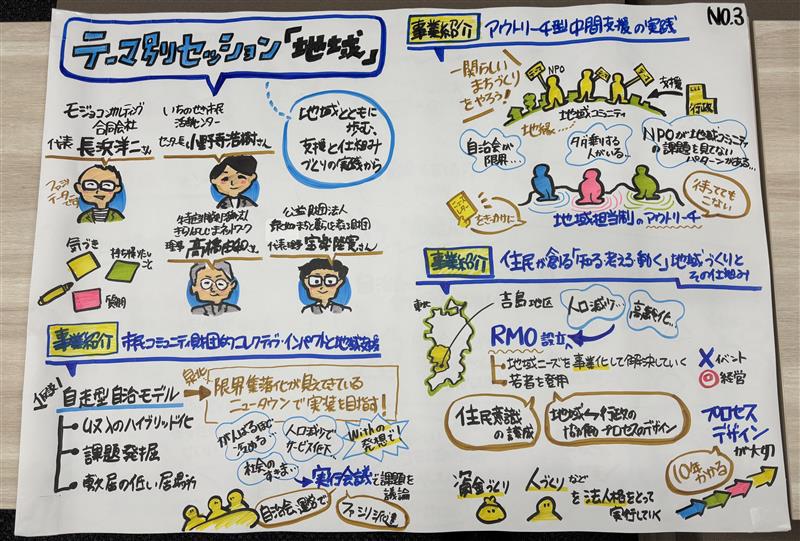 テーマ別セッション「地域」
モジョコンサルティング
合同会社
代表 長浜洋二さん
いちのせき市民
活動センター
センター長 小野寺浩樹さん
地域とともに
歩む、
支援と仕組み
づくりの実践から
ファシリ
テーターです
理事 高橋由和さん
公益財団法人
代表理事 宝楽陸寛さん
気づき
持ち帰りたい
こと
質問
事業紹介
市民コミュニティ財団的コレクティブ・インパクトと地域支援
自走型自治モデル
限界集落化が見えてきている
ニュータウンで実装を目指す!
収入のハイブリッド化
課題発掘
敷居の低い居場所
がんばるほど
人口減りで
サービス低下
Withの
発想で
実行会議で課題を
議論
自治会運営で
ファシリ派遣
No.3
事業紹介
アウトリーチ型中間支援の実践
一関らしい
まちづくり
をやろう!
NPO
地域コミュニティ
地縁…
支援
行政
自治会が
限界…
タダ乗りする
人がいる…
NPOが地域コミュニティ
の課題を見てない
パターンがある…
をきっかけに
地域担当制のアウトリーチ
待ってても
こない
事業紹介
住民が創る「知る考える動く」地域づくりと
その仕組み
東北
吉島地区
人口減少…
高齢化…
RMO設立
地域ニーズを事業化して解決していく
若者を登用
イベント
経営
住民意識
の醸成
地域↔行政の
協働プロセスのデザイン
プロセス
デザイン
が大切
10年かかる
資金づくり
人づくりなど
を法人格をとって
実行していく